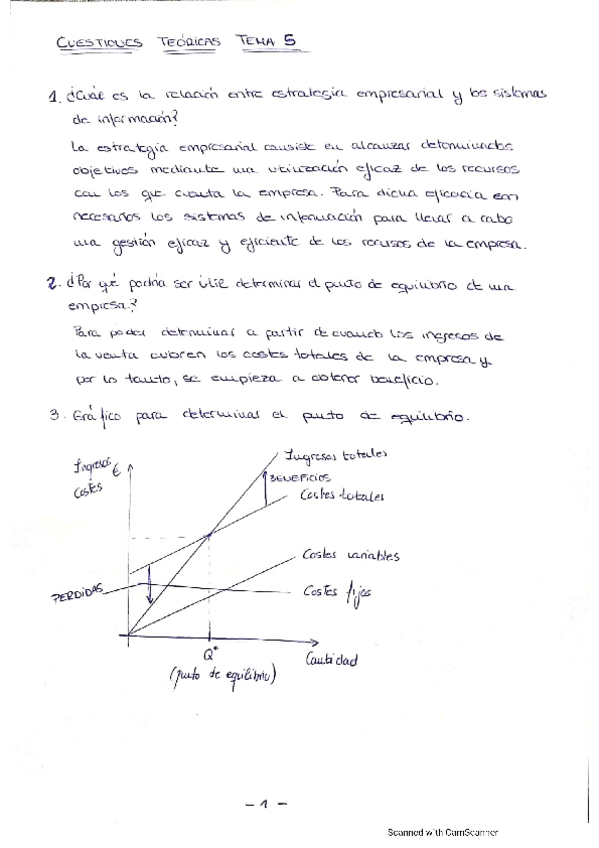 CUESTIONES TEÓRICAS TEMA 5
1. ¿Cuál es la relación entre estrategia empresarial y los sistemas
de información?
La estrategia empresarial consiste en alcanzar determinados
objetivos mediante una utilización eficaz de los recursos
con los que cuenta la empresa. Para dicha eficacia son
necesarios los sistemas de información para llevar a cabo
una gestión eficaz y eficiente de los recursos de la empresa.
2. ¿Por qué podría ser útil determinar el punto de equilibrio de una
empresa?
Para poder determinar a partir de cuando los ingresos de
la venta cubren los costes totales de la empresa y
por lo tanto, se empieza a obtener beneficio.
3. Gráfico para determinar el punto de equilibrio.
Ingresos totales
Ingresos €
Costes
BENEFICIOS
Costes totales
Costes variables
PERDIDAS
Costes fijos
Q*
Cantidad
(punto de equilibrio)
- 1 -
Scanned with CamScanner